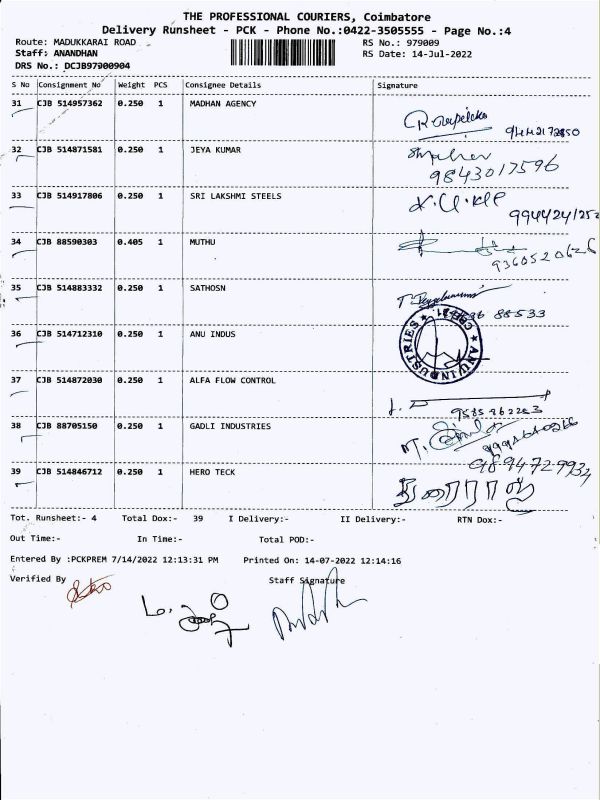 THE PROFESSIONAL COURIERS, Coimbatore
Delivery Runsheet - PCK - Phone No.:0422-3505555 - Page No.:4
Route: MADUKKARAI ROAD RS No.: 979009
Staff: ANANDHAN RS Date: 14-Jul-2022
DRS No.: DCJB97900904
S No Consignment No Weight PCS Consignee Details Signature
31 CJB 514957362 0.250 1 MADHAN AGENCY
32 CJB 514871581 0.250 1 JEYA KUMAR
9843017596
33 CJB 514917806 0.250 1 SRI LAKSHMI STEELS
34 CJB 88590303 0.405 1 MUTHU
9360520626
35 CJB 514883332 0.250 1 SATHOSN
88533
36 CJB 514712310 0.250 1 ANU INDUS
ANU INDUSTRIES
37 CJB 514872030 0.250 1 ALFA FLOW CONTROL
38 CJB 88705150 0.250 1 GADLI INDUSTRIES
39 CJB 514846712 0.250 1 HERO TECK
Tot. Runsheet:- 4 Total Dox:- 39 I Delivery:- II Delivery:- RTN Dox:-
Out Time:- In Time:- Total POD:-
Entered By :PCKPREM 7/14/2022 12:13:31 PM Printed On: 14-07-2022 12:14:16
Verified By Staff Signature